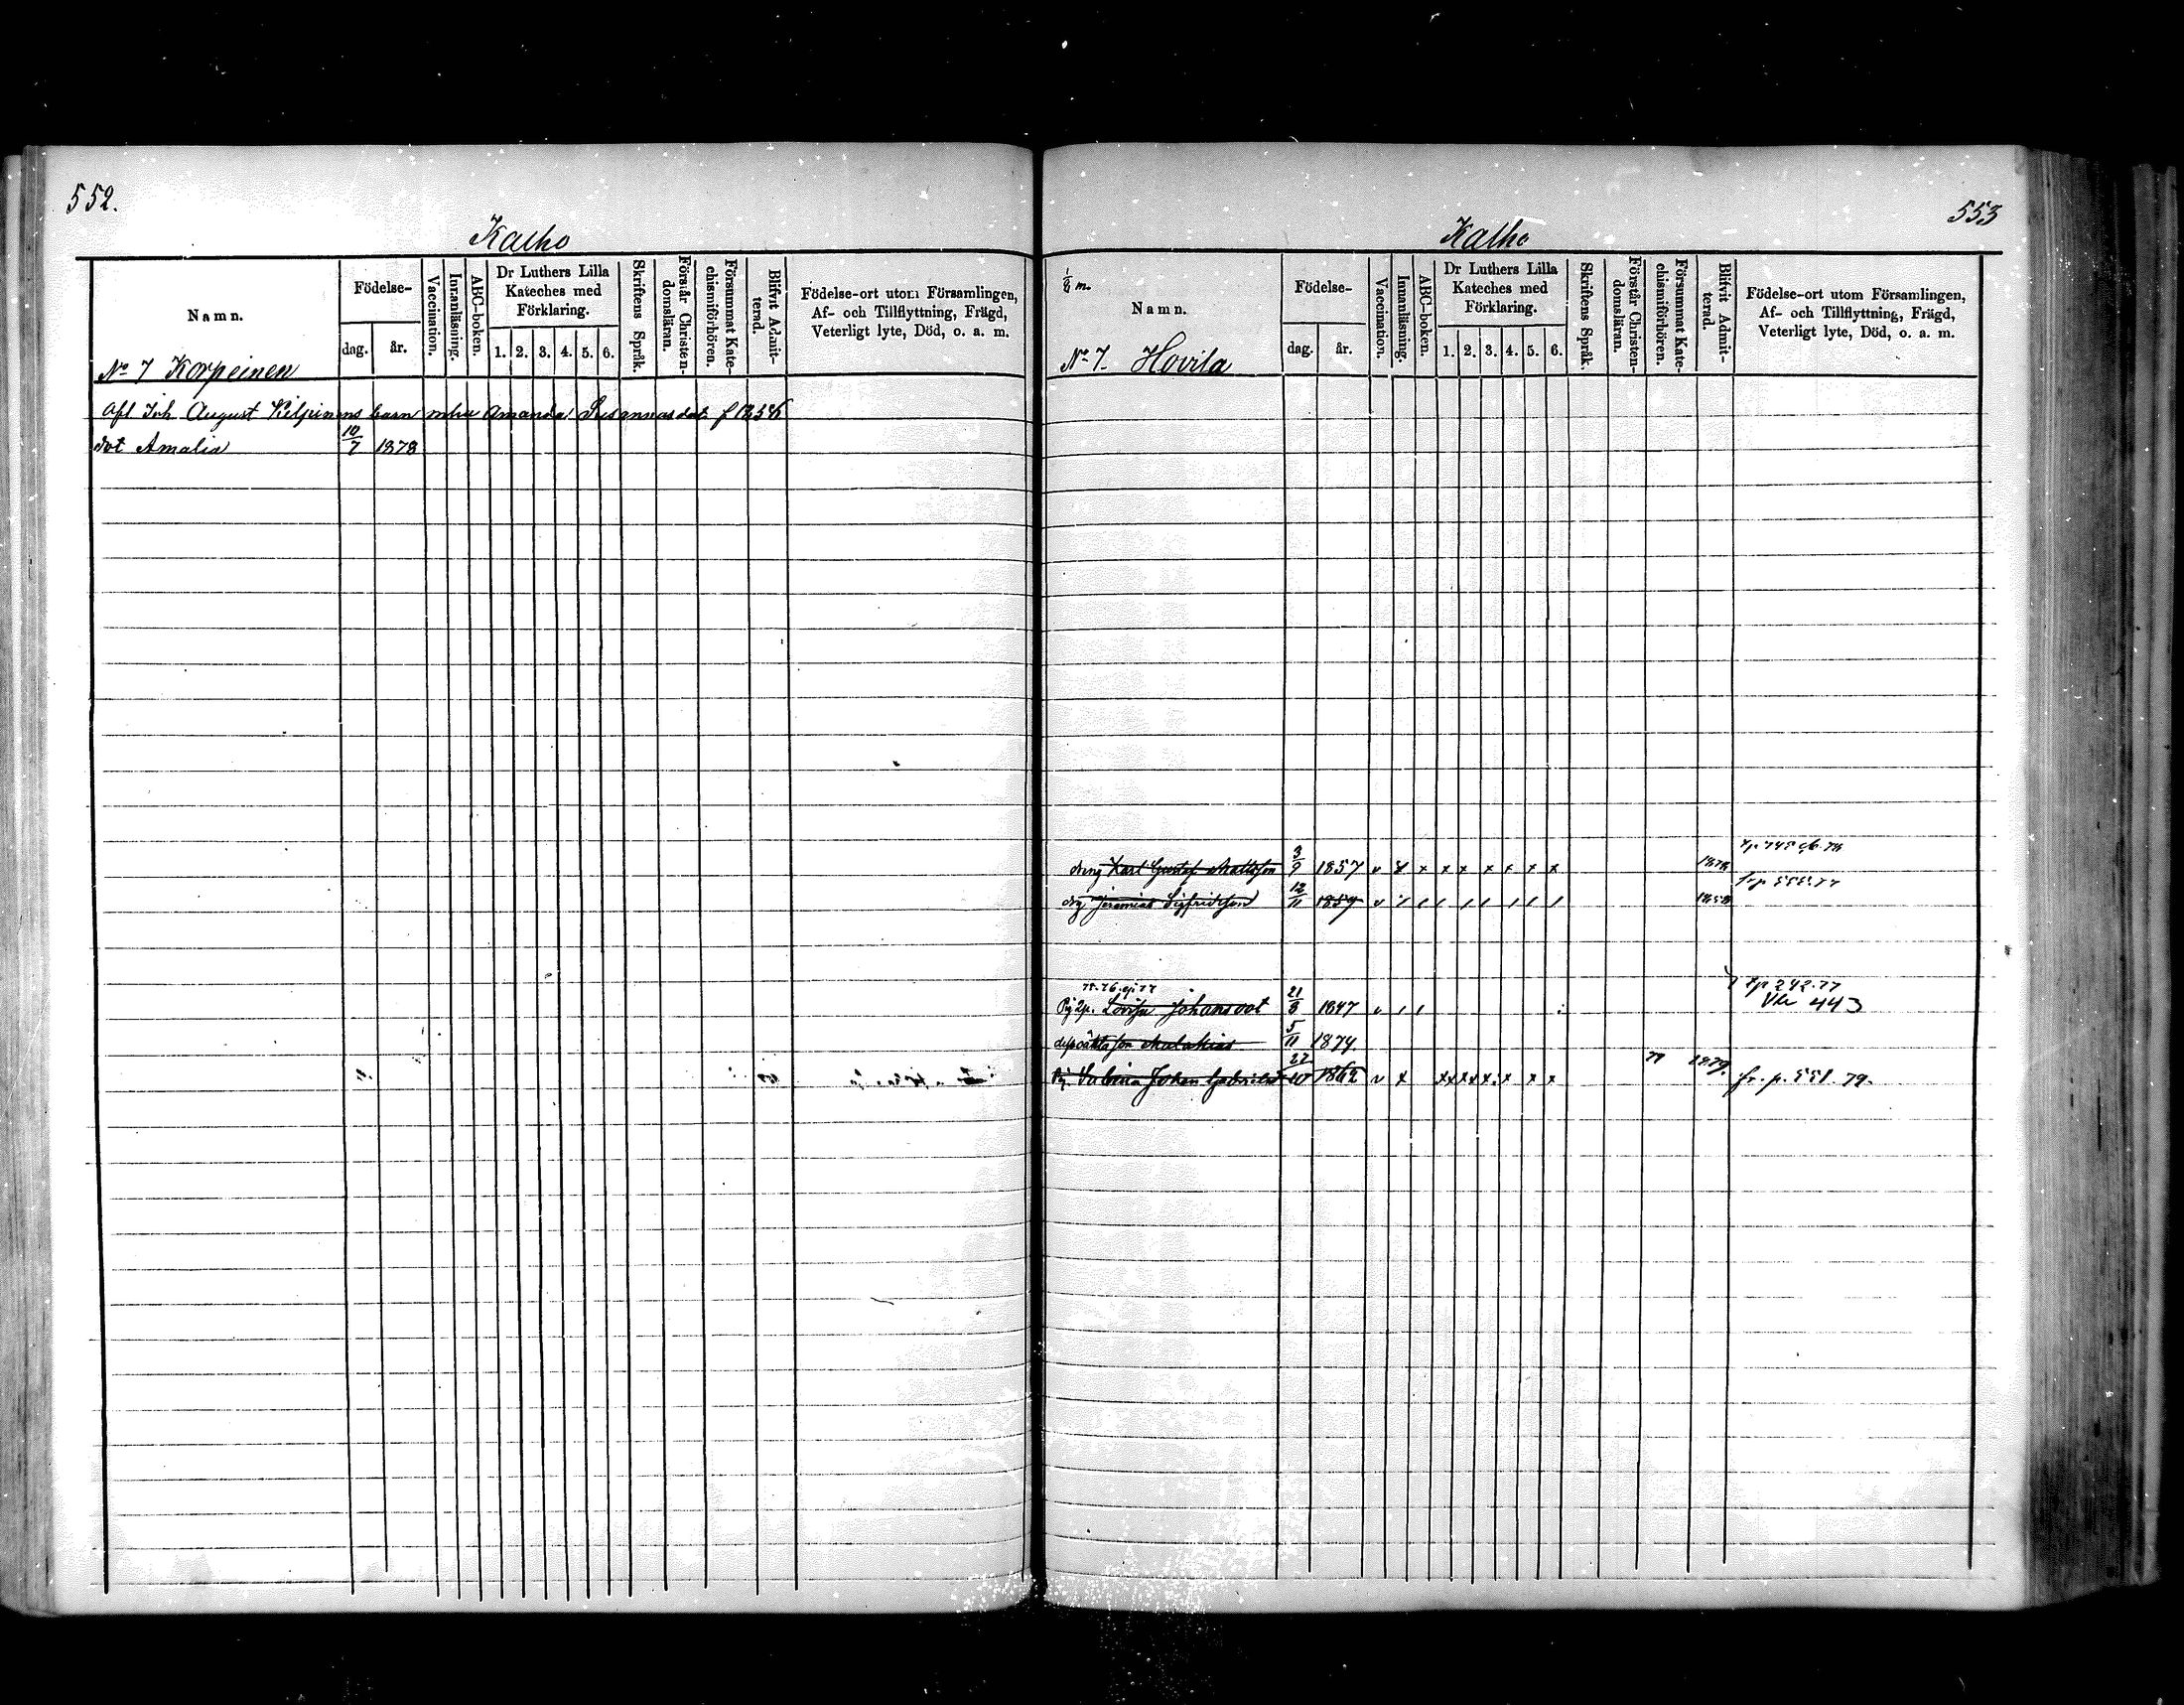 552.
Kalho
Namn.
Födelse-
dag.
år.
Vaccination.
Innanläsning.
ABC-boken.
Dr Luthers Lilla Kateches med Förklaring.
1. 2. 3. 4. 5. 6.
Skriftens Språk.
Förstår Christen-domsläran.
Försummat Kate-chismiförhören.
Blifvit Admit-terad.
Födelse-ort utom Församlingen, Af- och Tillflyttning, Frägd, Veterligt lyte, Död, o. a. m.
No 7 Korpeinen
Afl Joh. August Kilpinens barn Amanda Susannasdot. f 1856
dot Amalia 10/7 1878
553
Kalho
1/8 m.
Namn.
Födelse-
dag.
år.
Vaccination.
Innanläsning.
ABC-boken.
Dr Luthers Lilla Kateches med Förklaring.
1. 2. 3. 4. 5. 6.
Skriftens Språk.
Förstår Christen-domsläran.
Försummat Kate-chismiförhören.
Blifvit Admit-terad.
Födelse-ort utom Församlingen, Af- och Tillflyttning, Frägd, Veterligt lyte, Död, o. a. m.
No 7. Hovila
dräng Karl Gustaf Mattsson 3/9 1857 v x x x x x x x x
drg Jeremias Sigfridsson 12/11 1859 v
tp 242.77
Pig Lovisa Johansdot 21/8 1847 v 443
son Malakias 5/11 1874
Pig Johan Gabrielsd 27/10 1862 v x x x x x x x 1879. fr. p. 551. 79.